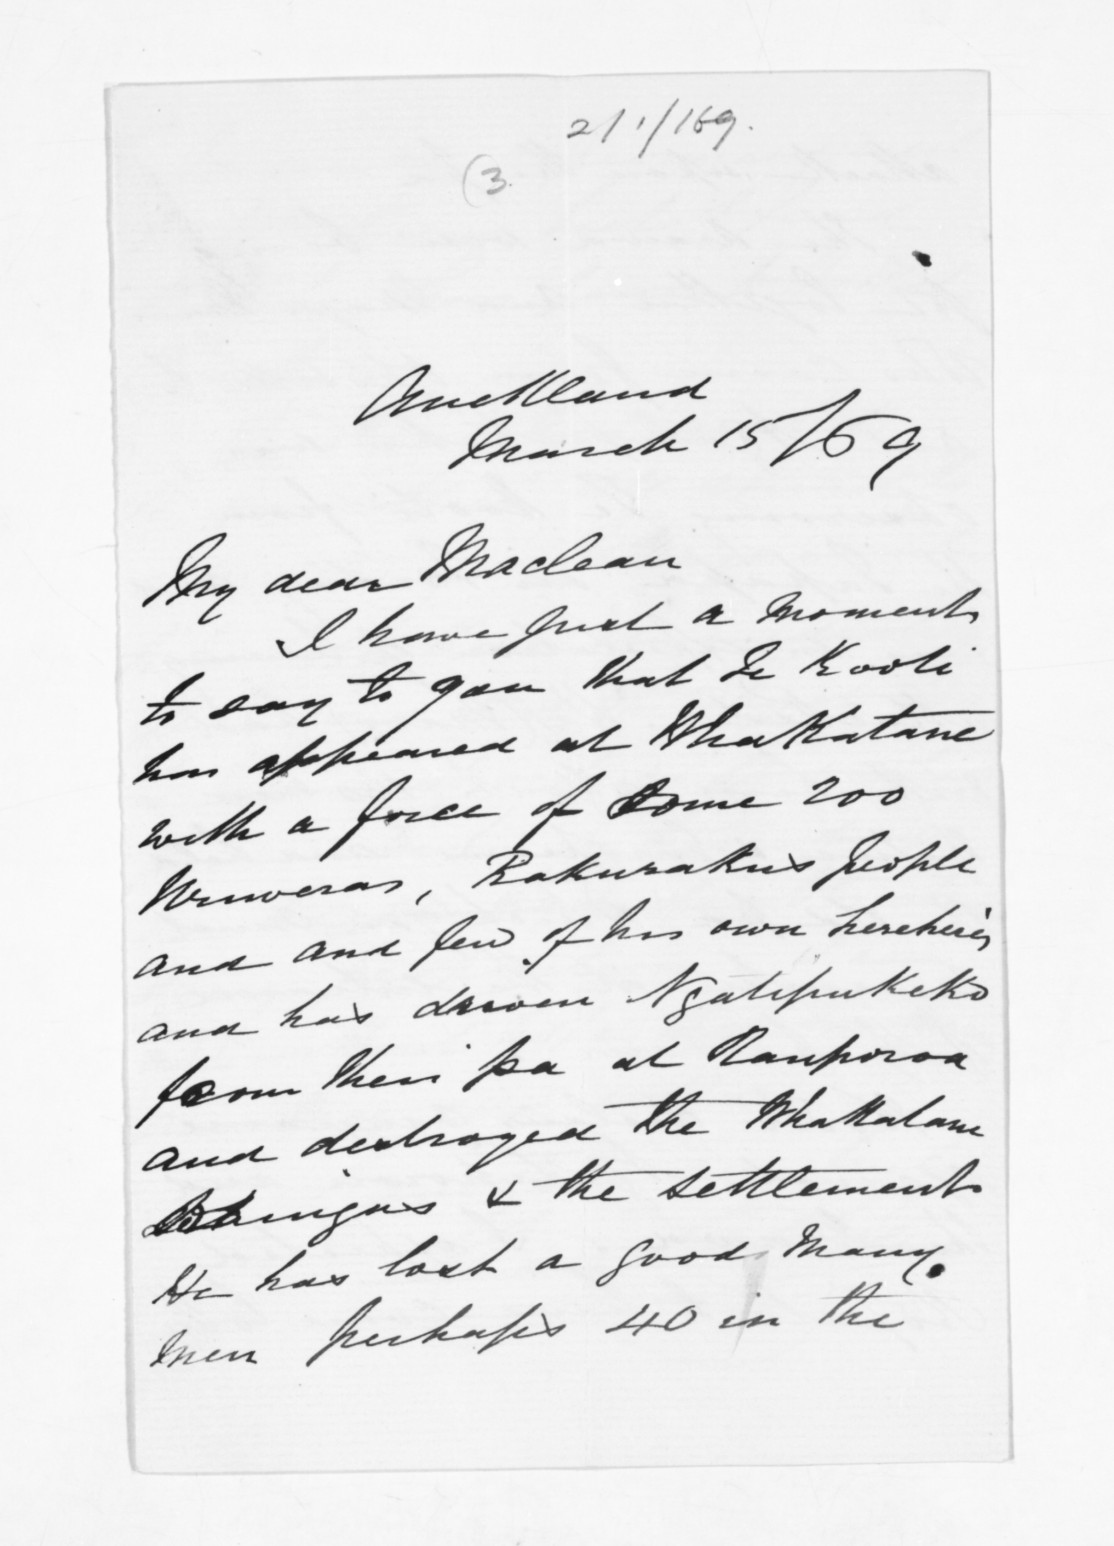 2/1/169.
(3.
Auckland
March 15/69
My dear Maclean
I have just a moment
to say to you that Te Kooti
has appeared at Whakatane
with a force of some 200
Ureweras, Rakurakus people
and and few of his own
and has driven Ngatipukeko
from their pa at Rauporoa
and destroyed the Whakatane
& the settlement
He has lost a good many
men perhaps 40 in the